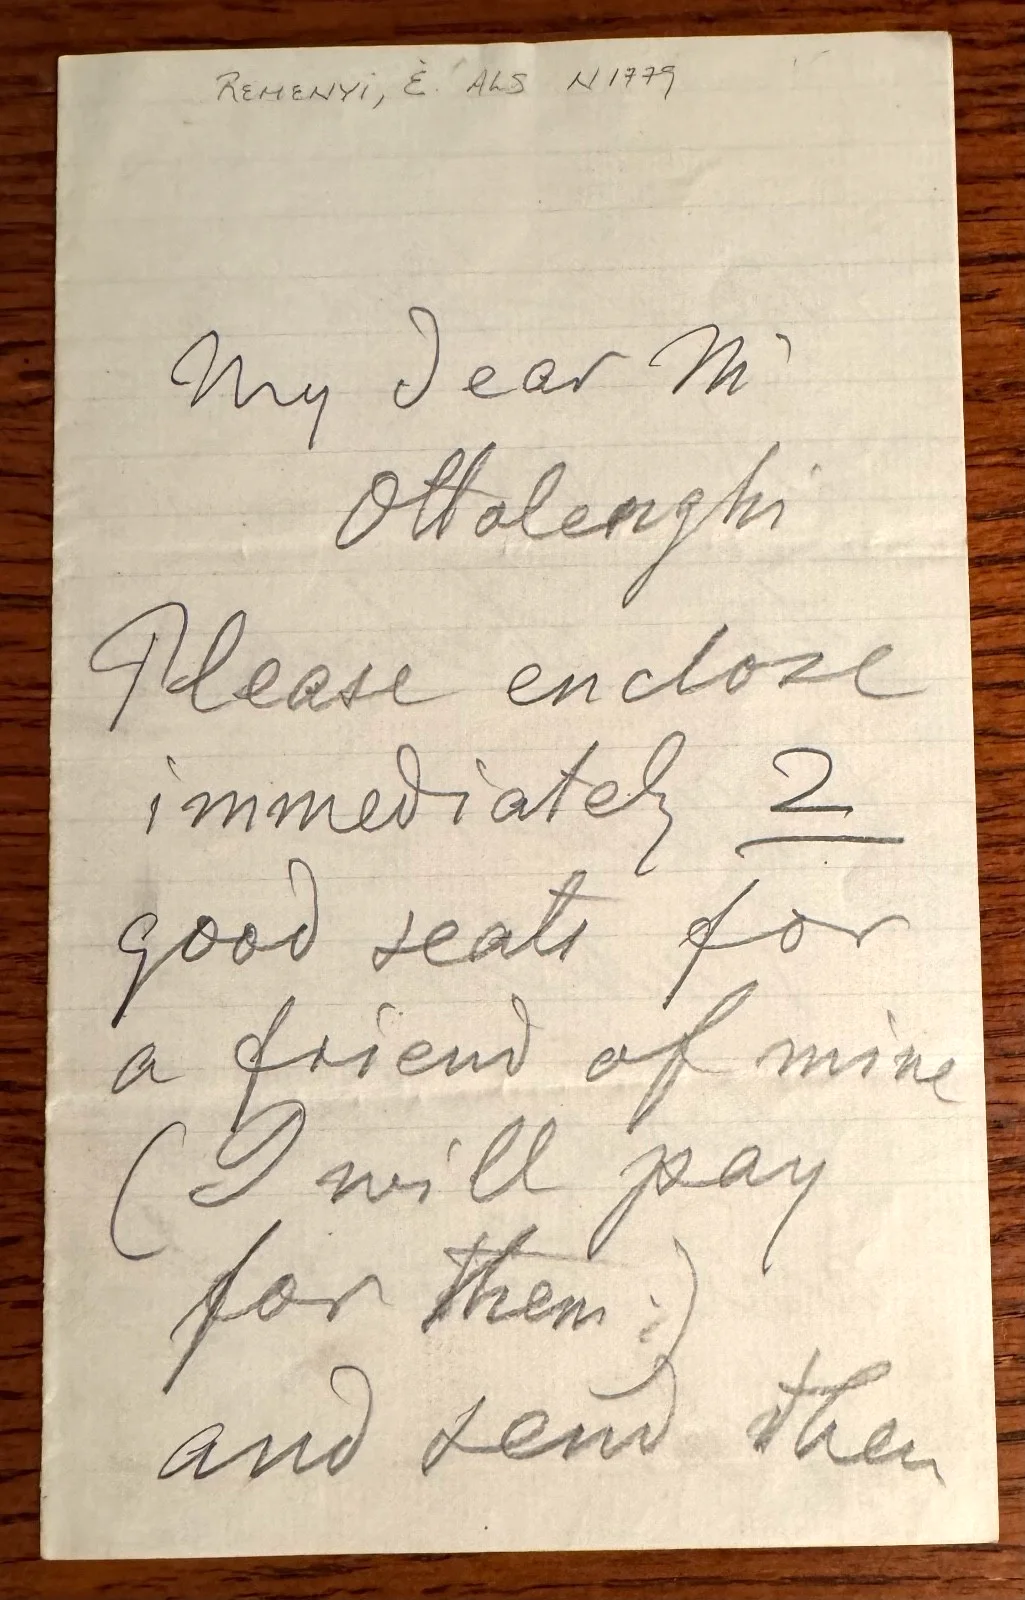 REMENYI, É. ALS N1779
My dear Mr
Ottolenghi
Please enclose
immediately 2
good seats for
a friend of mine
(I will pay
for them :)
and send them